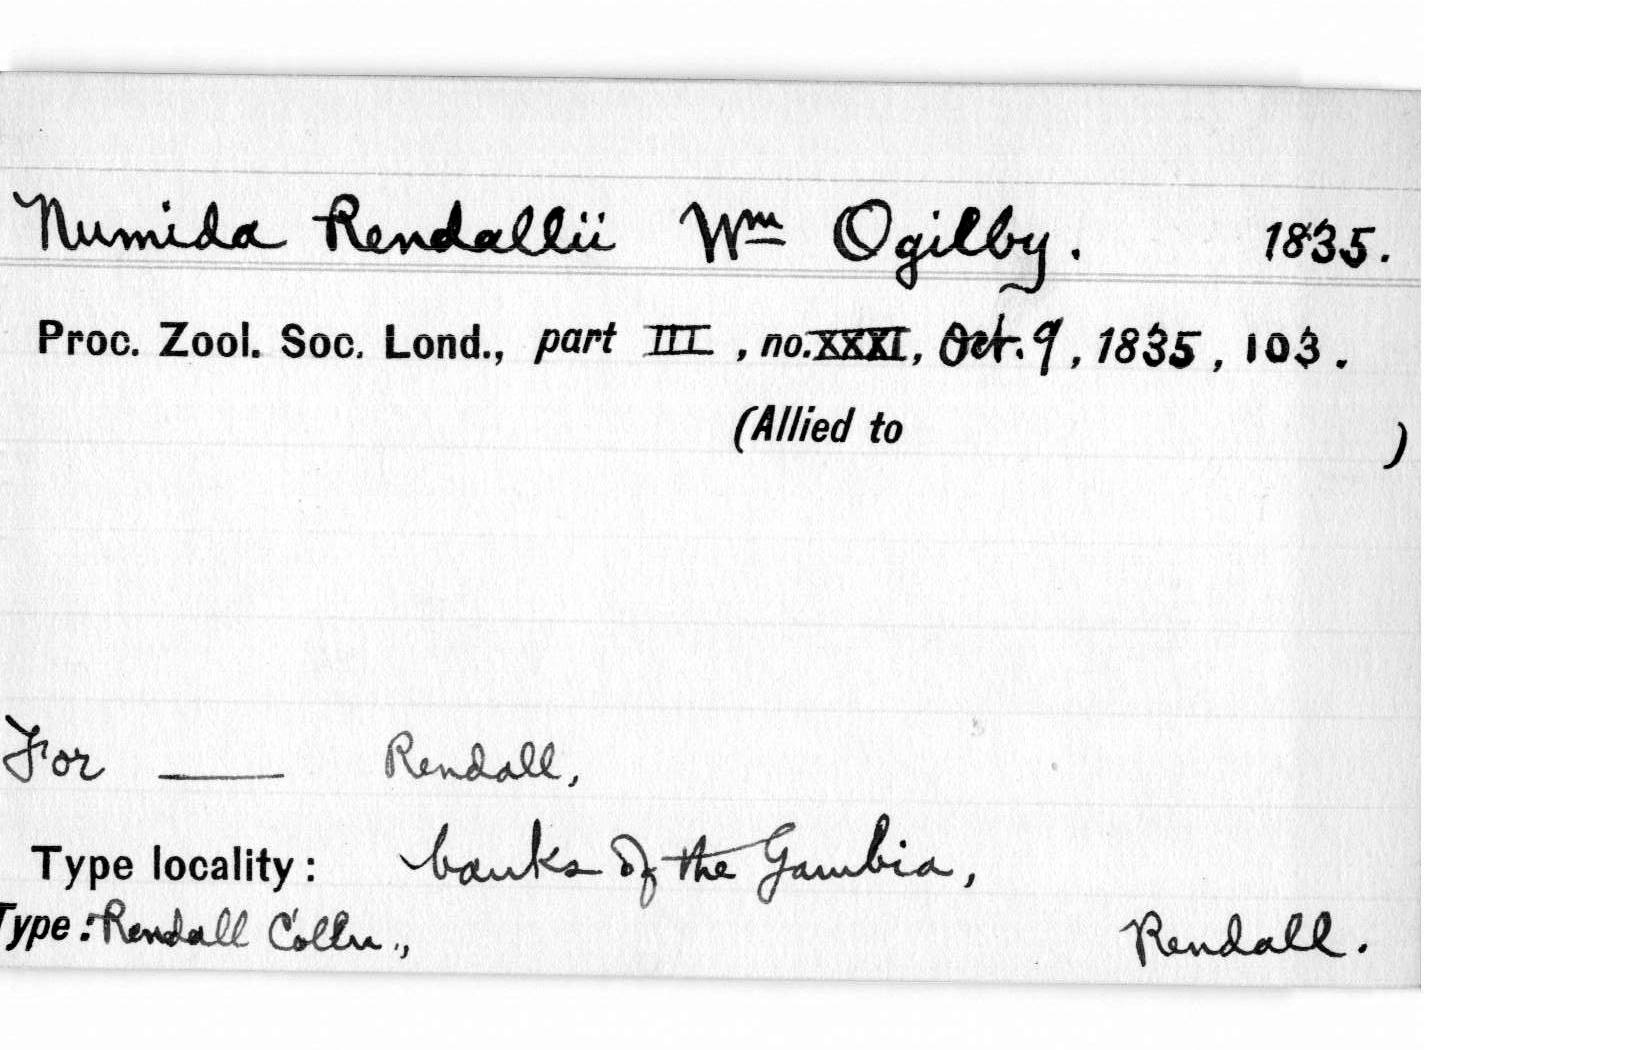 Numida Rendallii Wm Ogilby. 1835.
Proc. Zool. Soc. Lond., part III, no. XXXI, Oct. 9, 1835, 103.
(Allied to )
For ____ Rendall,
Type locality: banks of the Gambia,
Type: Rendall Colln., Rendall.